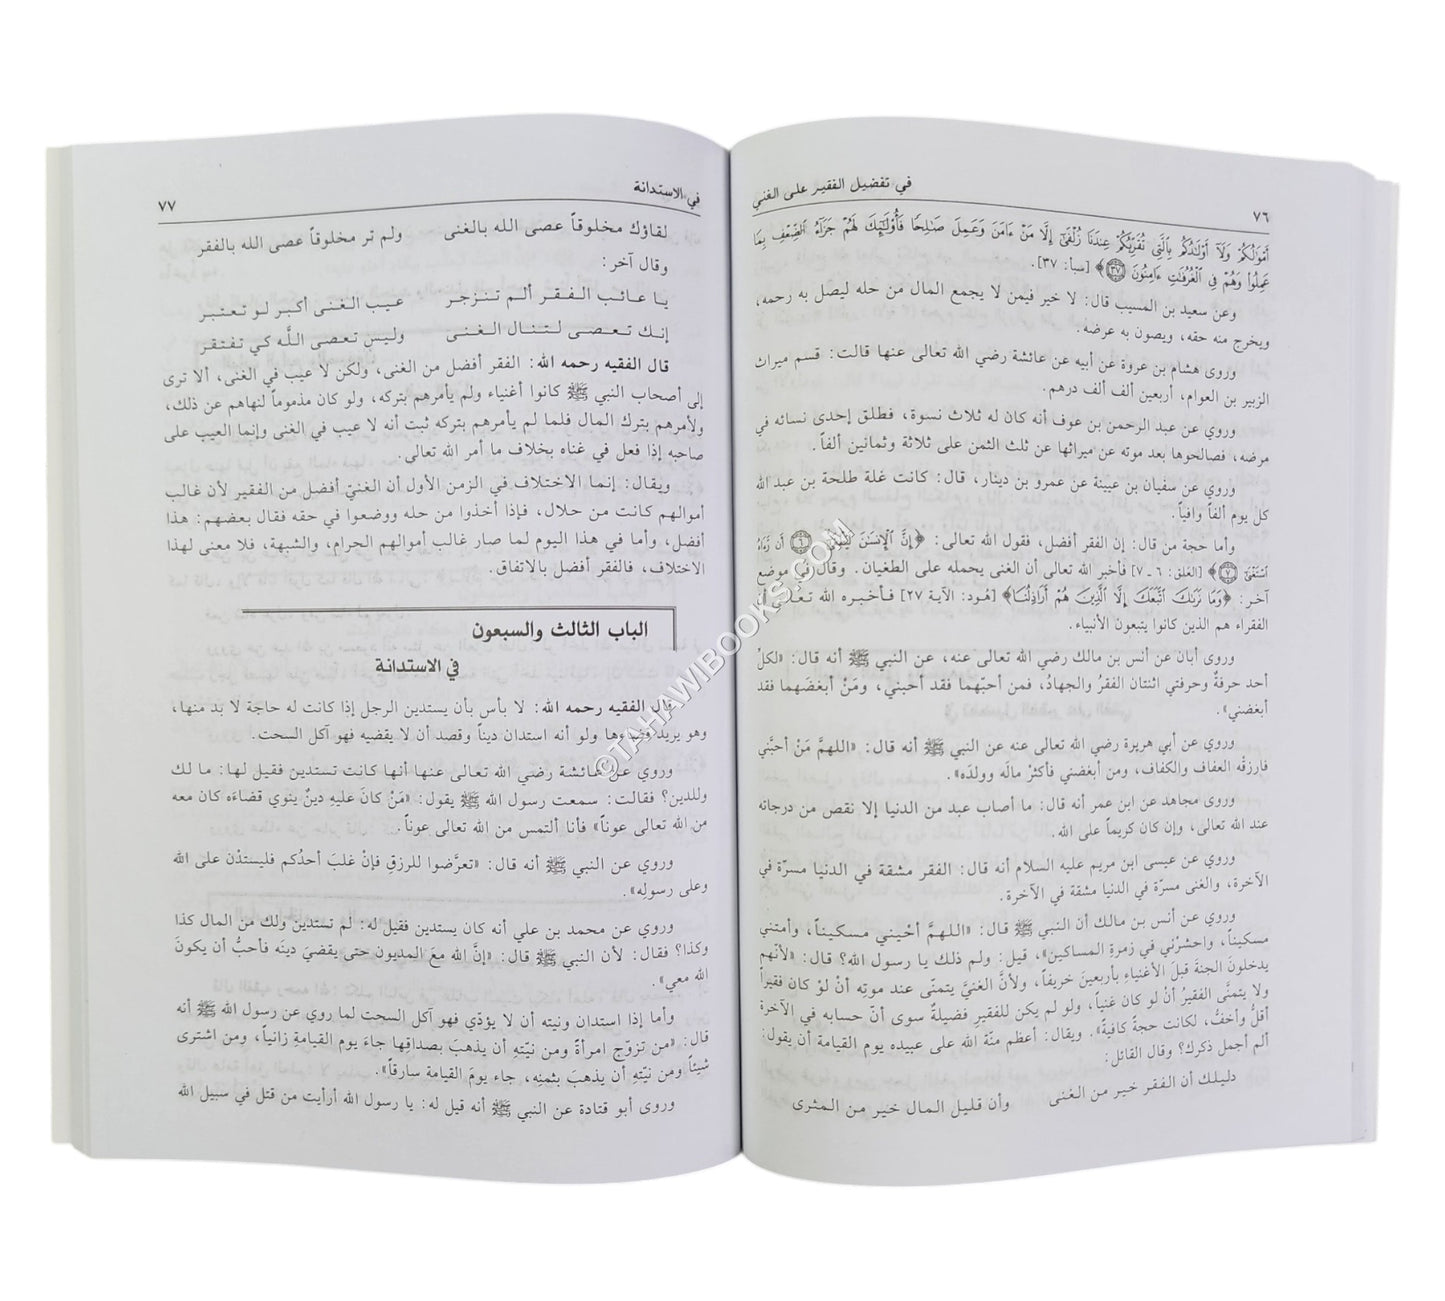 ٧٦ في تفضيل الفقير على الغني
أَمْوَٰلُكُمْ وَلَآ أَوْلَٰدُكُم بِٱلَّتِى تُقَرِّبُكُمْ عِندَنَا زُلْفَىٰٓ إِلَّا مَنْ ءَامَنَ وَعَمِلَ صَٰلِحًا فَأُو۟لَٰٓئِكَ لَهُمْ جَزَآءُ ٱلضِّعْفِ بِمَا
عَمِلُوا۟ وَهُمْ فِى ٱلْغُرُفَٰتِ ءَامِنُونَ ٣٧﴾ [سبأ: ٣٧].
وعن سعيد بن المسيب قال: لا خير فيمن لا يجمع المال من حله ليصل به رحمه،
ويخرج منه حقه، ويصون به عرضه.
وروى هشام بن عروة عن أبيه عن عائشة رضي الله تعالى عنها قالت: قسم ميراث
الزبير بن العوام، أربعين ألف ألف درهم.
وروي عن عبد الرحمن بن عوف أنه كان له ثلاث نسوة، فطلق إحدى نسائه في
مرضه، فصالحوها بعد موته عن ميراثها عن ثلث الثمن على ثلاثة وثمانين ألفاً.
وروي عن سفيان بن عيينة عن عمرو بن دينار، قال: كانت غلة طلحة بن عبد الله
كل يوم ألفاً وافياً.
وأما حجة من قال: إن الفقر أفضل، فقول الله تعالى: ﴿إِنَّ ٱلْإِنسَٰنَ لَيَطْغَىٰٓ ٦ أَن رَّءَاهُ
ٱسْتَغْنَىٰٓ ٧﴾ [العَلق: ٦ ـ ٧] فأخبر الله تعالى أن الغنى يحمله على الطغيان. وقال في موضع
آخر: ﴿وَمَا نَرَىٰكَ ٱتَّبَعَكَ إِلَّا ٱلَّذِينَ هُمْ أَرَاذِلُنَا﴾ [هُود: الآية ٢٧] فأخبره الله تعالى أن
الفقراء هم الذين كانوا يتبعون الأنبياء.
وروى أبان عن أنس بن مالك رضي الله تعالى عنه، عن النبي ﷺ أنه قال: «لكلِّ
أحد حرفةٌ وحرفتي اثنتان الفقرُ والجهادُ، فمن أحبّهما فقد أحبني، ومَنْ أبغضَهما فقد
أبغضني».
وروي عن أبي هريرة رضي الله تعالى عنه عن النبي ﷺ أنه قال: «اللهمَّ مَنْ أحبَّني
فارزقْه العفاف والكفاف، ومن أبغضني فأكثرْ مالَه وولدَه».
وروى مجاهد عن ابن عمر أنه قال: ما أصاب عبد من الدنيا إلا نقص من درجاته
عند الله تعالى، وإن كان كريماً على الله.
وروي عن عيسى ابن مريم عليه السلام أنه قال: الفقر مشقة في الدنيا مسرّة في
الآخرة، والغنى مسرّة في الدنيا مشقة في الآخرة.
وروي عن أنس بن مالك أن النبي ﷺ قال: «اللهمَّ أحْيِني مسكيناً، وأمتني
مسكيناً، واحشرْني في زمرةِ المساكين»، قيل: ولم ذلك يا رسول الله؟ قال: «لأنهم
يدخلونَ الجنةَ قبلَ الأغنياءِ بأربعينَ خريفاً، ولأنَّ الغنيَّ يتمنّى عند موتِه أنْ لوْ كان فقيراً
ولا يتمنَّى الفقيرُ أنْ لو كان غنياً، ولو لم يكن للفقيرِ فضيلةٌ سوى أنّ حسابه في الآخرة
أقلُّ وأخفُّ، لكانت حجةً كافيةً». ويقال: أعظم منّة الله على عبيده يوم القيامة أن يقول:
ألم أجمل ذكرك؟ وقال القائل:
دليلك أن الفقر خير من الغنى وأن قليل المال خير من المثرى
في الاستدانة ٧٧
لقاؤك مخلوقاً عصى الله بالغنى ولم تر مخلوقاً عصى الله بالفقر
وقال آخر:
يا عائب الفقر ألم تنزجر عيب الغنى أكبر لو تعتبر
إنك تعصى لتنال الغنى وليس تعصى اللَّه كي تفتقر
قال الفقيه رحمه الله: الفقر أفضل من الغنى، ولكن لا عيب في الغنى، ألا ترى
إلى أصحاب النبي ﷺ كانوا أغنياء ولم يأمرهم بتركه، ولو كان مذموماً لنهاهم عن ذلك،
ولأمرهم بترك المال فلما لم يأمرهم بتركه ثبت أنه لا عيب في الغنى وإنما العيب على
صاحبه إذا فعل في غناه بخلاف ما أمر الله تعالى.
ويقال: إنما الاختلاف في الزمن الأول أن الغنيّ أفضل من الفقير لأن غالب
أموالهم كانت من حلال، فإذا أخذوا من حله ووضعوا في حقه فقال بعضهم: هذا
أفضل، وأما في هذا اليوم لما صار غالب أموالهم الحرام، والشبهة، فلا معنى لهذا
الاختلاف، فالفقر أفضل بالاتفاق.
الباب الثالث والسبعون
في الاستدانة
قال الفقيه رحمه الله: لا بأس بأن يستدين الرجل إذا كانت له حاجة لا بد منها،
وهو يريد قضاءها ولو أنه استدان ديناً وقصد أن لا يقضيه فهو آكل السحت.
وروي عن عائشة رضي الله تعالى عنها أنها كانت تستدين فقيل لها: ما لك
وللدين؟ فقالت: سمعت رسول الله ﷺ يقول: «مَنْ كانَ عليهِ دينٌ ينوي قضاءَه كان معه
من الله تعالى عوناً» فأنا ألتمس من الله تعالى عوناً.
وروي عن النبي ﷺ أنه قال: «تعرَّضوا للرزقِ فإنْ غلبَ أحدُكم فليستدْن على الله
وعلى رسولِه».
وروي عن محمد بن علي أنه كان يستدين فقيل له: لم تستدين ولك من المال كذا
وكذا؟ فقال: لأن النبي ﷺ قال: «إنَّ الله معَ المديون حتى يقضيَ دينَه فأحبُّ أن يكونَ
الله معي».
وأما إذا استدان ونيته أن لا يؤدّي فهو آكل السحت لما روي عن رسول الله ﷺ أنه
قال: «من تزوّج امرأةً ومن نيّتِه أن يذهبَ بصداقِها جاءَ يوم القيامةِ زانياً، ومن اشترى
شيئاً ومن نيّتِه أن يذهبَ بثمنِه، جاء يومَ القيامة سارقاً».
وروى أبو قتادة عن النبي ﷺ أنه قيل له: يا رسول الله أرأيت من قتل في سبيل الله
©TAHAWIBOOKS.COM